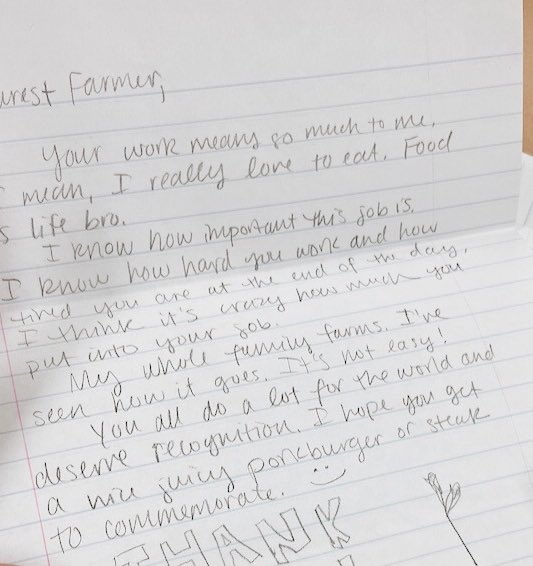 arest Farmer,
Your work means so much to me.
mean, I really love to eat. Food
s life bro.
I know how important this job is.
I know how hard you work and how
tired you are at the end of the day.
I think it's crazy how much you
put into your job.
My whole family farms. I've
seen how it goes. It's not easy!
You all do a lot for the world and
deserve recognition. I hope you get
a nice juicy porkburger or steak
to commemorate.
THANK